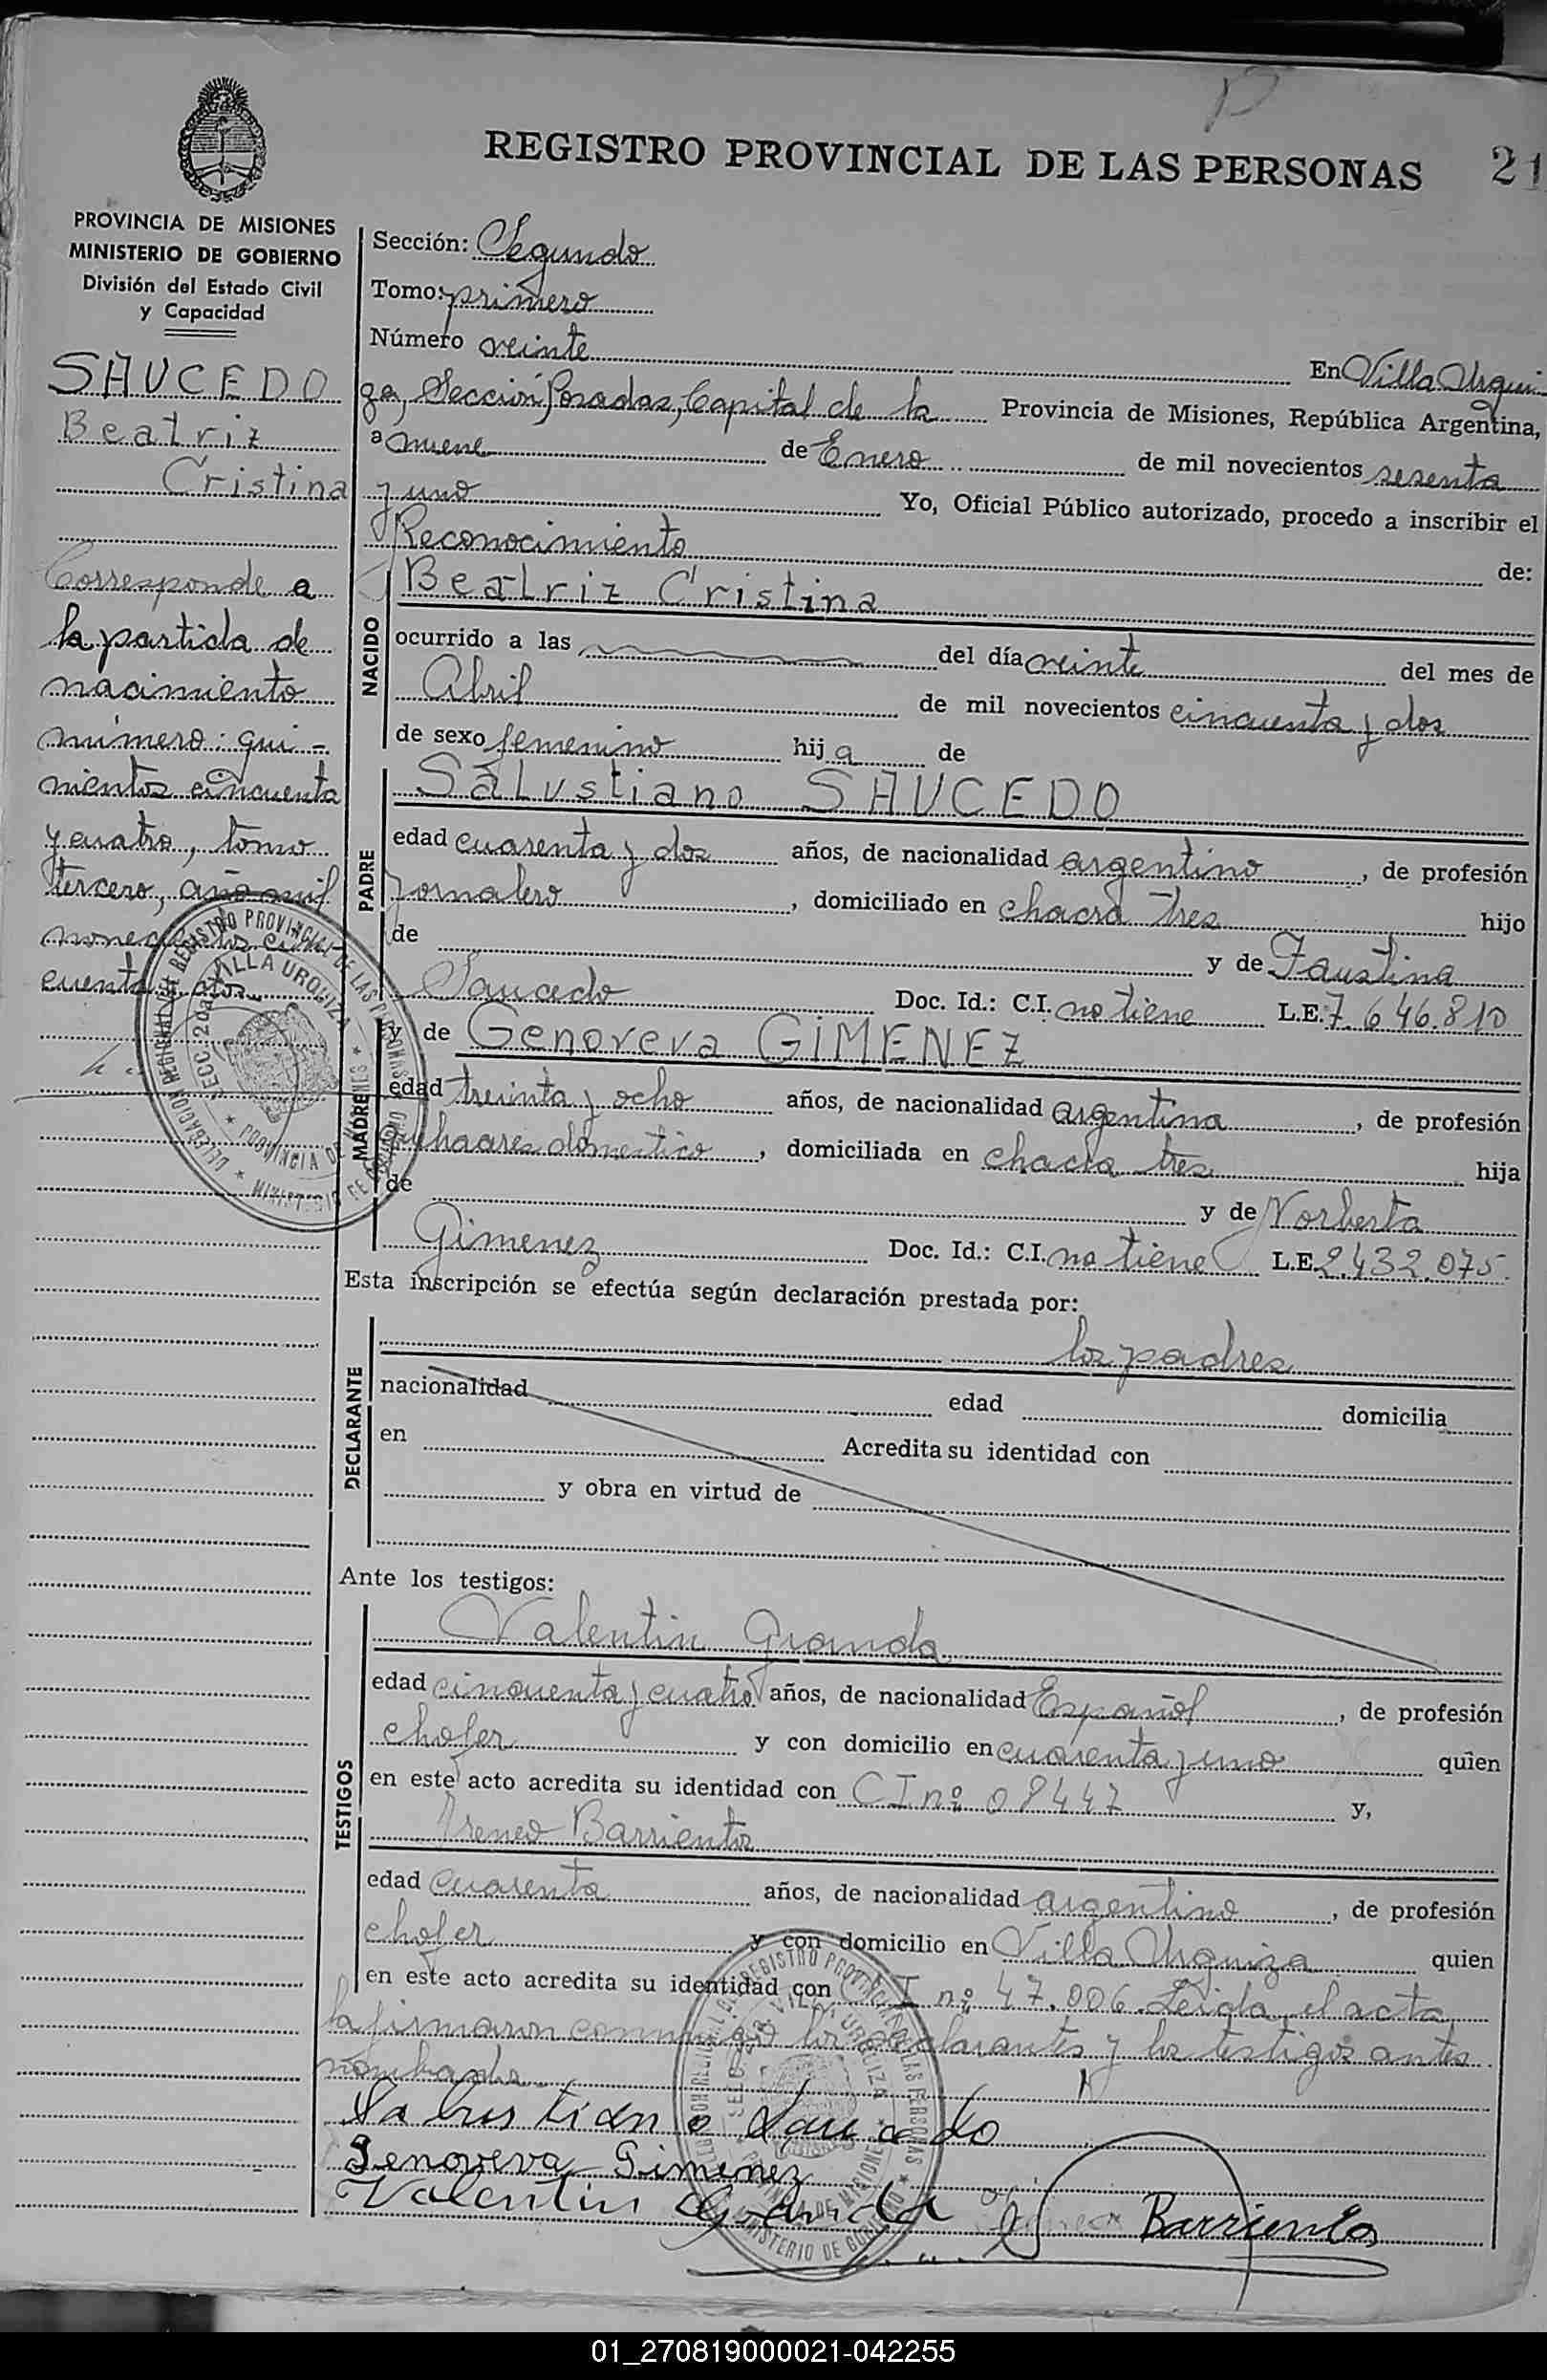 REGISTRO PROVINCIAL DE LAS PERSONAS 21
PROVINCIA DE MISIONES
MINISTERIO DE GOBIERNO
División del Estado Civil
y Capacidad
SAUCEDO
Beatriz
Cristina
Corresponde a
la partida de
nacimiento
número: qui-
nientos cincuenta
y cuatro, tomo
tercero, año mil
novecientos cin-
cuenta y dos
Sección: Segundo
Tomo: primero
Número veinte En Villa Urqui
za, Sección Posadas, Capital de la Provincia de Misiones, República Argentina,
a nueve de Enero de mil novecientos sesenta
y uno Yo, Oficial Público autorizado, procedo a inscribir el
Reconocimiento de:
NACIDO
Beatriz Cristina
ocurrido a las del día veinte del mes de
Abril de mil novecientos cincuenta y dos
de sexo femenino hija de
PADRE
Salustiano SAUCEDO
edad cuarenta y dos años, de nacionalidad argentino, de profesión
jornalero, domiciliado en chacra tres hijo
de y de Faustina
Saucedo Doc. Id.: C.I. no tiene L.E. 7.646.810
MADRE
y de Genoveva GIMENEZ
edad treinta y ocho años, de nacionalidad argentina, de profesión
quehaares domestico, domiciliada en chacra tres hija
de y de Norberta
Gimenez Doc. Id.: C.I. no tiene L.E. 2.432.075.
Esta inscripción se efectúa según declaración prestada por:
DECLARANTE
los padres
nacionalidad edad domicilia
en Acredita su identidad con
y obra en virtud de
Ante los testigos:
TESTIGOS
Valentin Granda
edad cincuenta y cuatro años, de nacionalidad Español, de profesión
chofer y con domicilio en cuarenta y uno quien
en este acto acredita su identidad con CI nº 08447 y,
Ireneo Barrientos
edad cuarenta años, de nacionalidad argentino, de profesión
chofer y con domicilio en Villa Urquiza quien
en este acto acredita su identidad con C I nº 47.006. Leida el acta
la firmaron conmigo los declarantes y los testigos antes
nombrados
Salustiano Saucedo
Genoveva Gimenez
Valentin Granda
Barrientos
REGISTRO PROVINCIAL DE LAS PERSONAS
VILLA URQUIZA
PROVINCIA DE MISIONES
MINISTERIO DE GOBIERNO
01_270819000021-042255